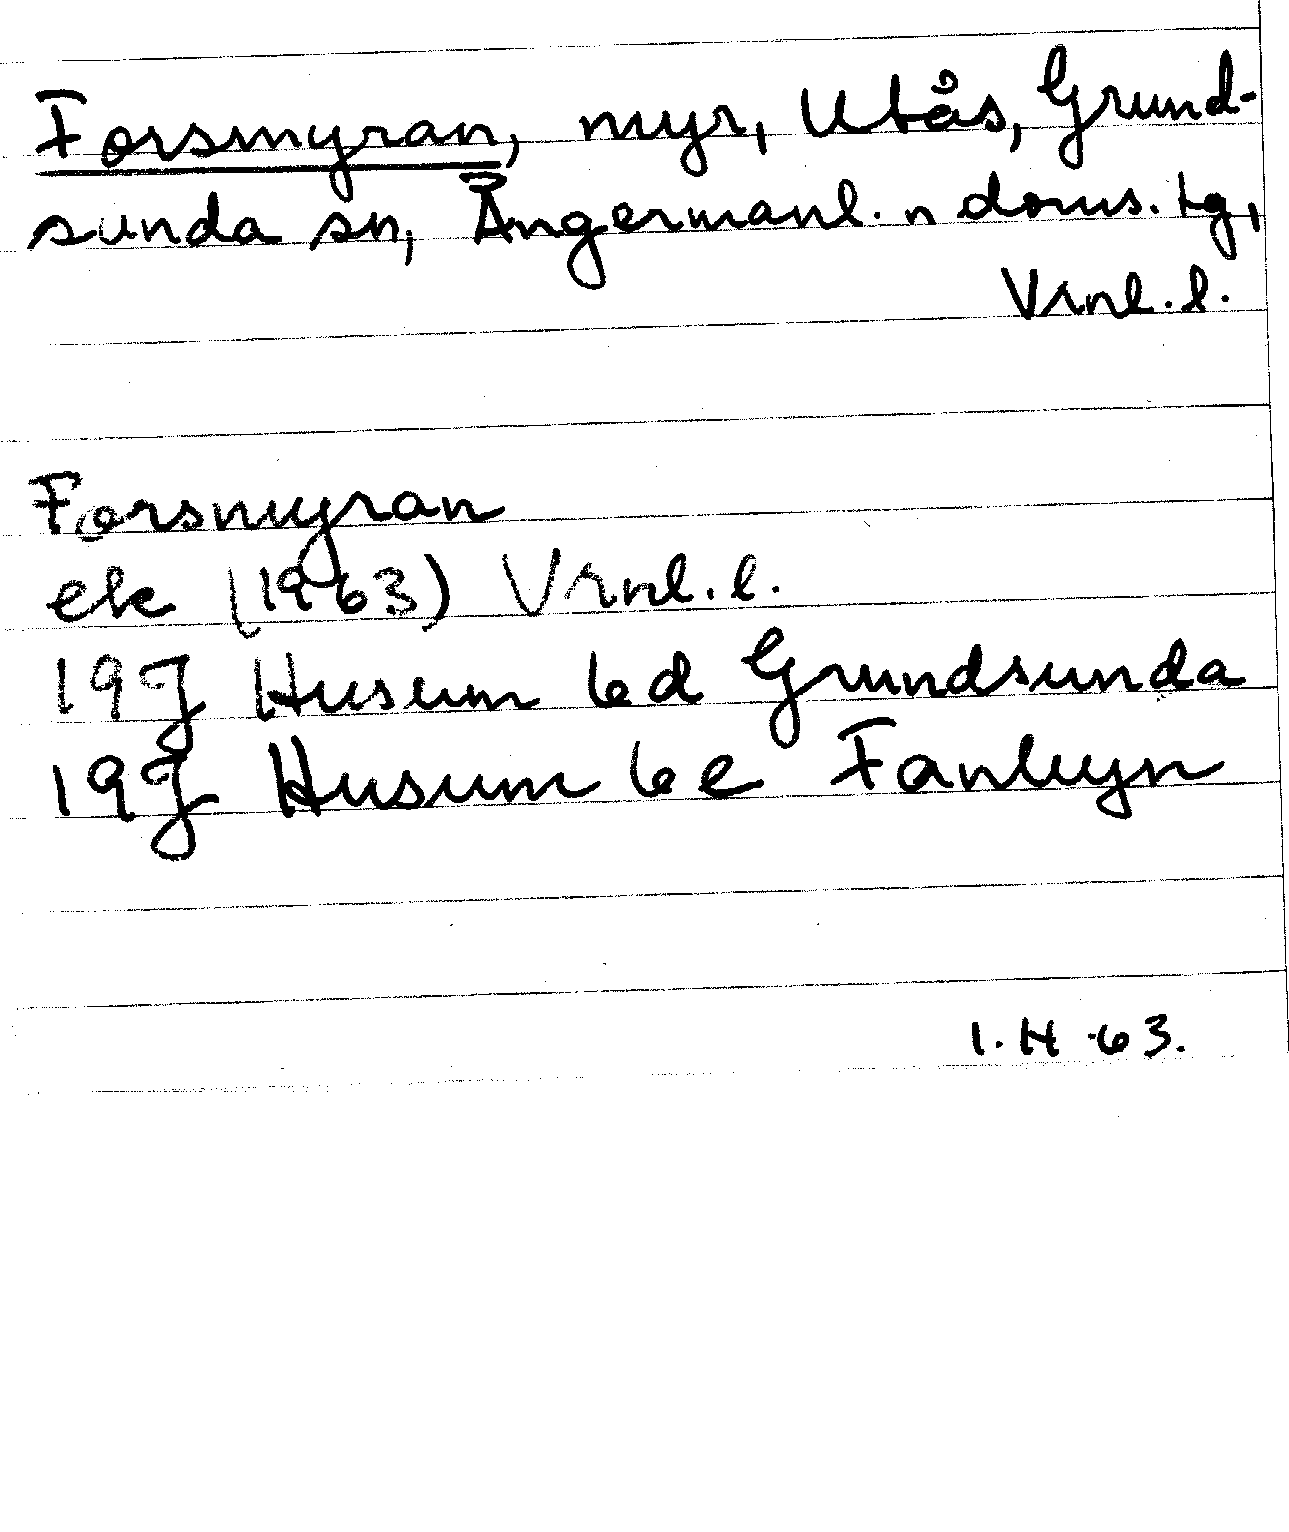 Forsmyran, myr, Utås, Grund-
sunda sn, Ångermanl. n doms. tg,
Vrnl. l.
Forsmyran
ek (1963) Vrnl. l.
19J Husum 6d Grundsunda
19J Husum 6e Fanbyn
I. H -63.